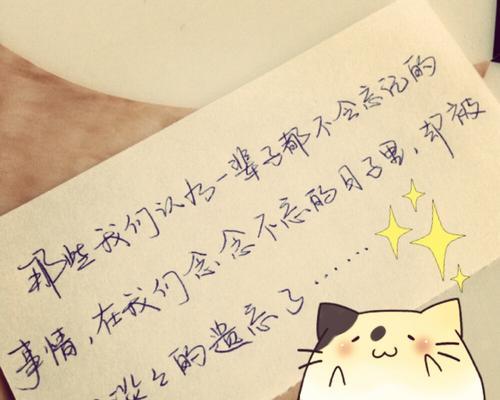 那些我们认为一辈子都不会忘记的
事情，在我们念念不忘的日子里，却被
淡々的遗忘了……